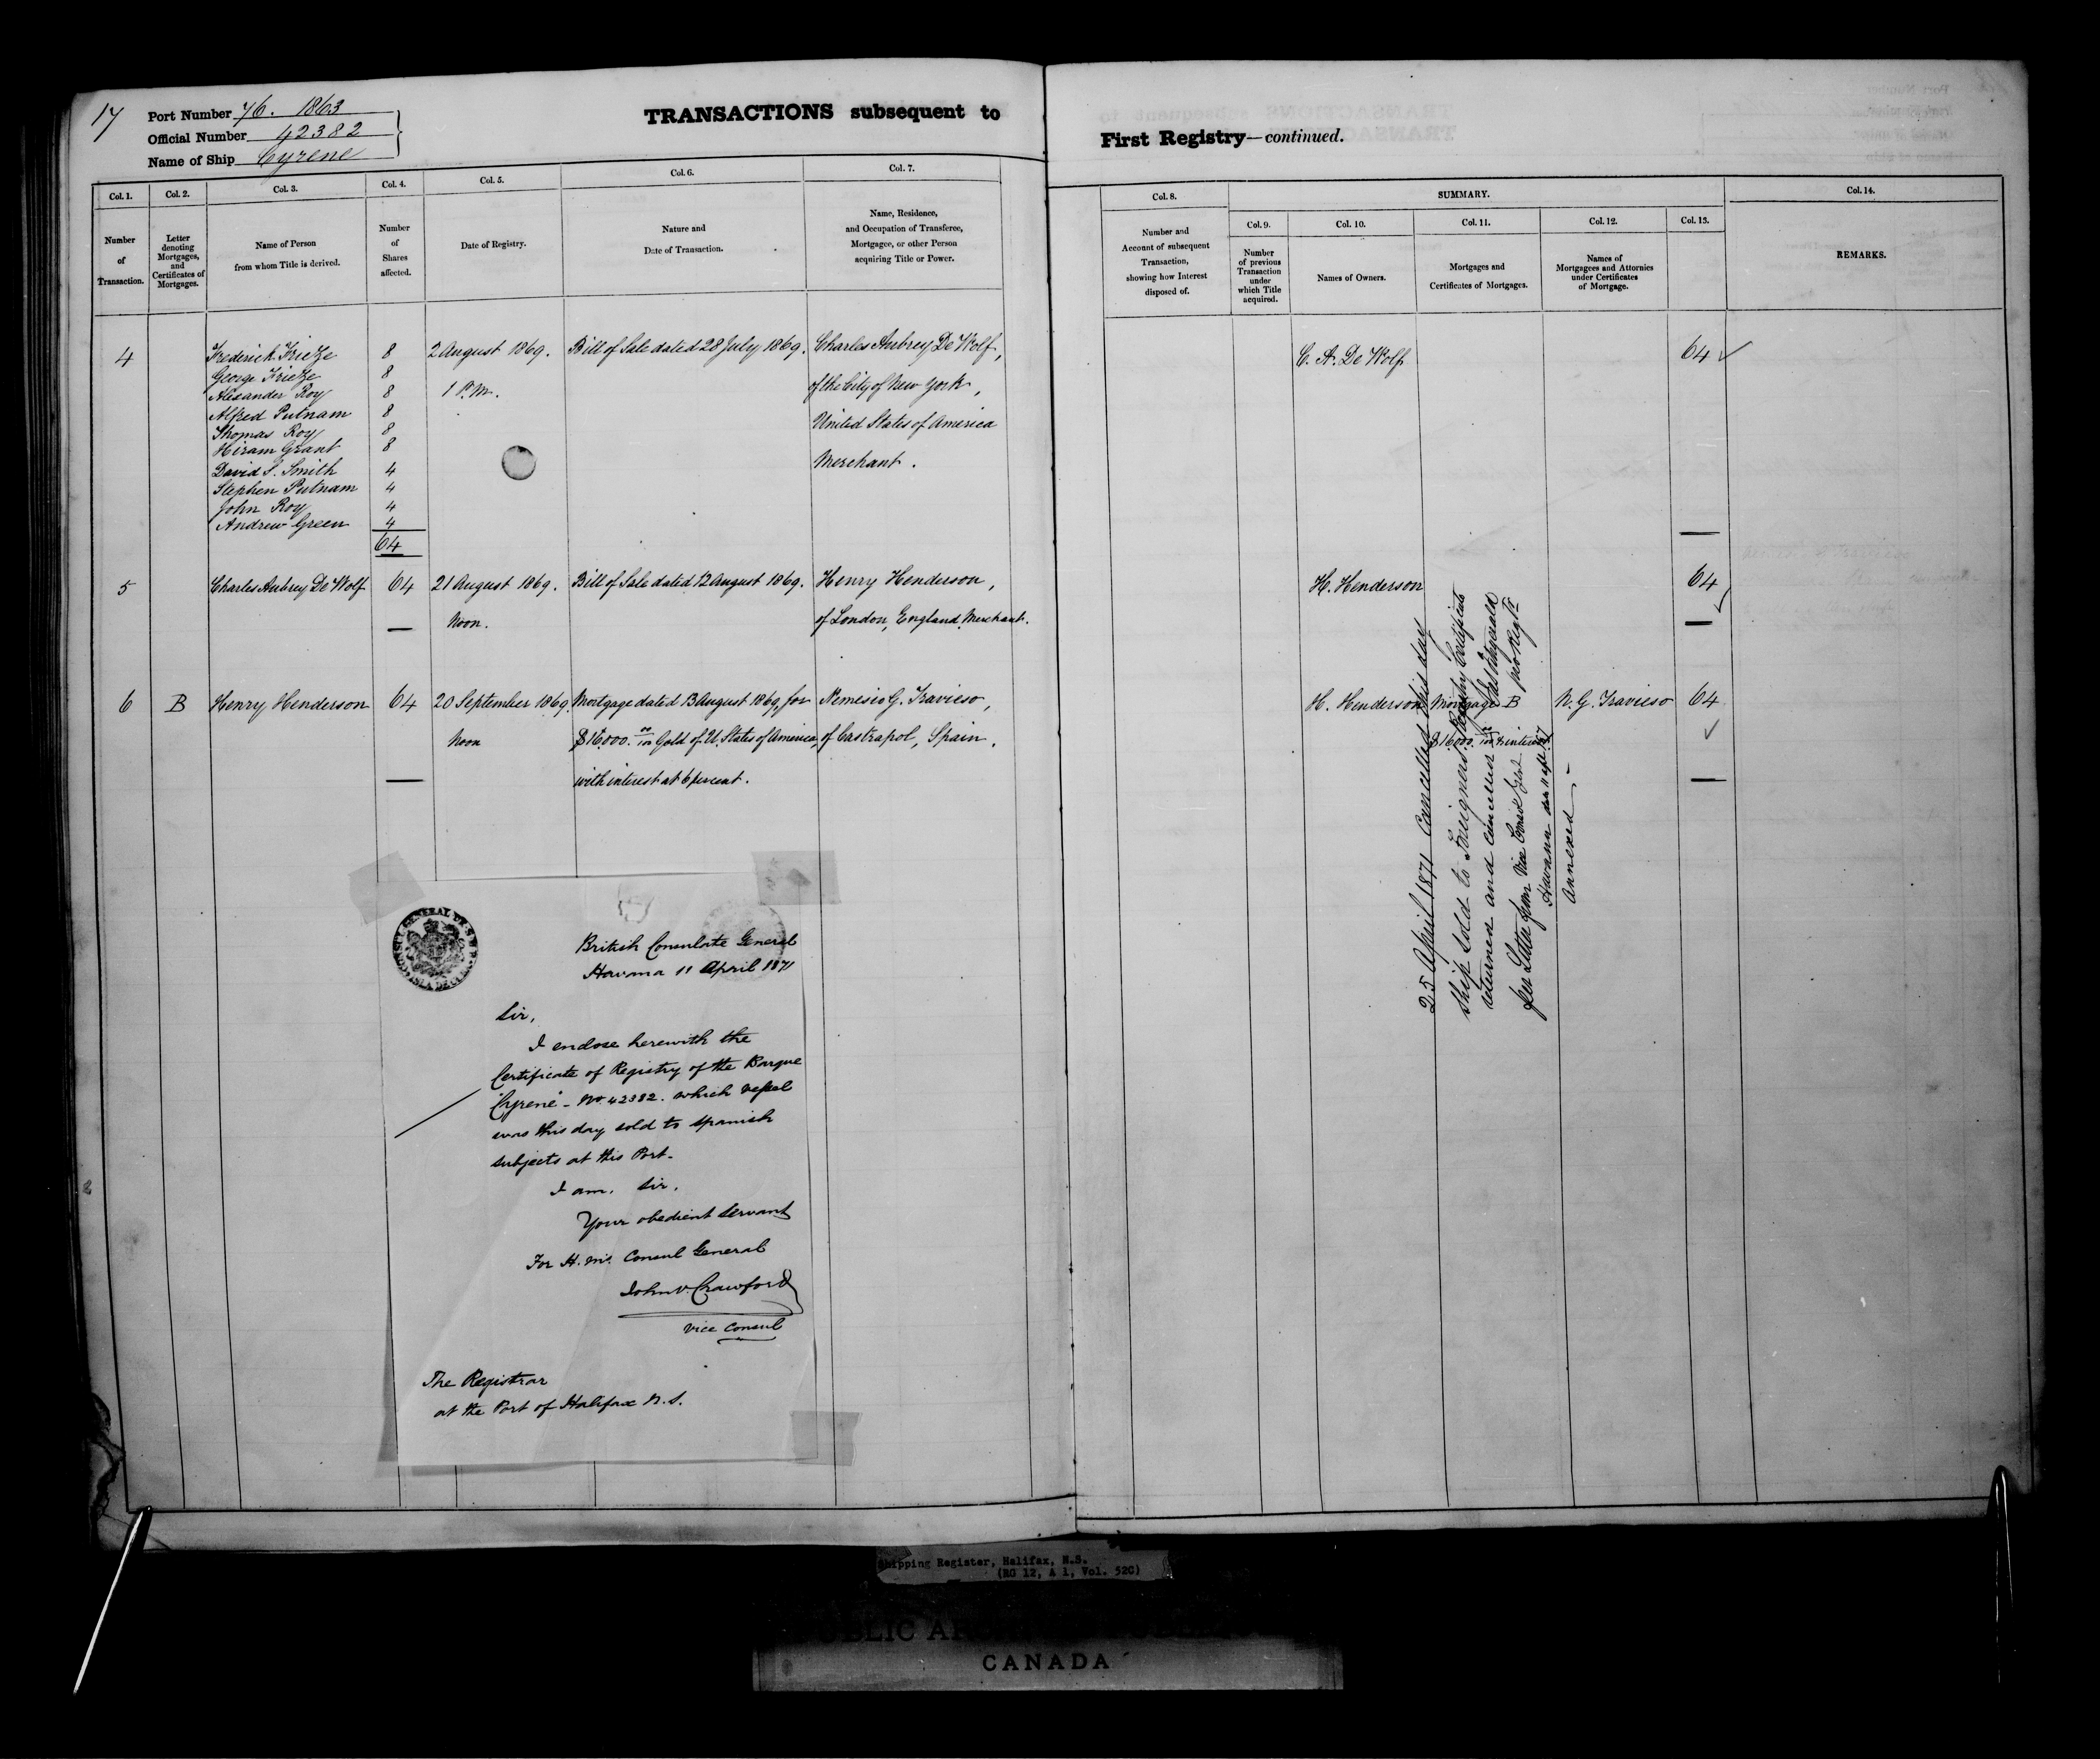 17
Port Number 76. 1863
Official Number 42382
Name of Ship Cyrene
TRANSACTIONS subsequent to
Col. 1.
Number
of
Transaction.
Col. 2.
Letter
denoting
Mortgages,
and
Certificates of
Mortgages.
Col. 3.
Name of Person
from whom Title is derived.
Col. 4.
Number
of
Shares
affected.
Col. 5.
Date of Registry.
Col. 6.
Nature and
Date of Transaction.
Col. 7.
Name, Residence,
and Occupation of Transferee,
Mortgagee, or other Person
acquiring Title or Power.
4
Frederick Frieze 8
George Frieze 8
Alexander Roy 8
Alfred Putnam 8
Thomas Roy 8
Hiram Grant 8
David S. Smith 4
Stephen Putnam 4
John Roy 4
Andrew Green 4
64
2 August 1869.
1 P.M.
Bill of Sale dated 28 July 1869.
Charles Aubrey De Wolf,
of the City of New York,
United States of America
Merchant.
5 Charles Aubrey De Wolf 64 21 August 1869. Bill of Sale dated 12 August 1869. Henry Henderson,
Noon. of London, England, Merchant.
6 B Henry Henderson 64 20 September 1869. Mortgage dated 13 August 1869, for Nemesio G. Travieso,
Noon $16,000. 00/100 Gold of U. States of America, of Castropol, Spain.
with interest at 6 percent.
CONSUL GENERAL DE S.M.B.
ISLA DE CUBA
British Consulate General
Havana 11 April 1871
Sir,
I enclose herewith the
Certificate of Registry of the Barque
"Cyrene" - No. 42382. which vessel
was this day sold to Spanish
subjects at this Port-
I am, Sir,
Your obedient Servant
For H.M's. Consul General
John V. Crawford
Vice Consul
The Registrar
at the Port of Halifax N.S.
First Registry—continued.
Col. 8.
Number and
Account of subsequent
Transaction,
showing how Interest
disposed of.
SUMMARY.
Col. 9.
Number
of previous
Transaction
under
which Title
acquired.
Col. 10.
Names of Owners.
Col. 11.
Mortgages and
Certificates of Mortgages.
Col. 12.
Names of
Mortgagees and Attornies
under Certificates
of Mortgage.
Col. 13.
Col. 14.
REMARKS.
C. A. De Wolf 64 ✓
H. Henderson 64
H. Henderson Mortgage B N. G. Travieso 64
$16000. & interest ✓
25 April 1871 Cancelled this day
Ship Sold to Foreigners Registry Certificate
returned and cancelled
per Letter from Vice Consul Genl
Havana 11 apl 71
Annexed.-
Shipping Register, Halifax, N.S.
(RG 12, A 1, Vol. 52C)
CANADA